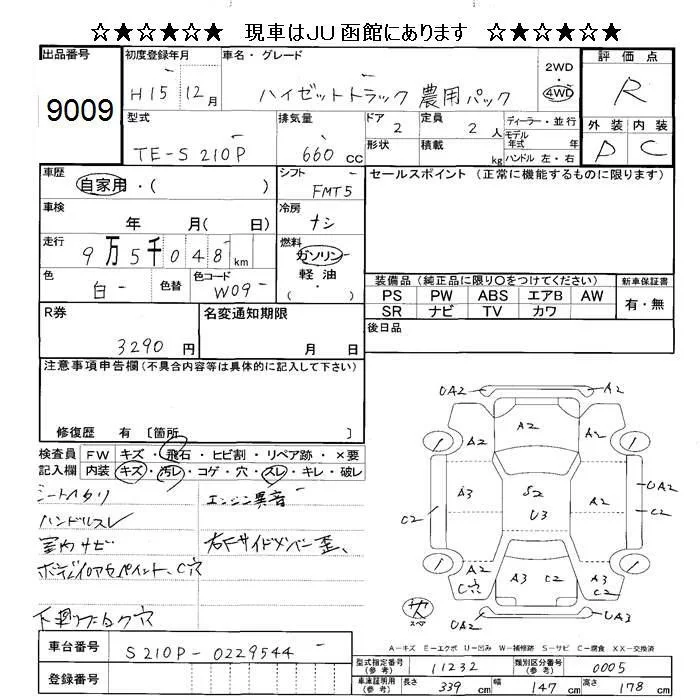 ☆★☆★☆★ 現車はJU函館にあります ☆★☆★☆★
出品番号 9009
初度登録年月 H15 12月
車名・グレード ハイゼットトラック 農用パック
2WD・4WD
評価点 R
型式 TE-S210P
排気量 660cc
ドア 2
定員 2人
ディーラー・並行
モデル年式 年式
形状
積載 kg
ハンドル 左・右
外装 内装
D C
車歴 自家用・( )
シフト FMT5
セールスポイント (正常に機能するものに限ります)
車検 年 月( 日)
冷房 ナシ
走行 9万5千048km
燃料 ガソリン・軽油・( )
色 白 色替
色コード W09
装備品 (純正品に限り○をつけてください)
新車保証書
PS PW ABS エアB AW
SR ナビ TV カワ
有・無
R券 3290円
名変通知期限 月 日
後日品
注意事項申告欄(不具合内容等は具体的に記入して下さい)
修復歴 有 〔箇所
検査員記入欄
FW キズ・飛石・ヒビ割・リペア跡・×要
内装 キズ・汚レ・コゲ・穴・スレ・キレ・破レ
シートヘタリ
エンジン異音
ハンドルスレ
室内サビ
右Fサイドメンバー歪、
C穴
UA2 A2
A2
A2 A2
A3 S2 A2 UA2
C2 U3 C2
A2 A3 C2 A3
C穴 C2
UA3
スペア
A-キズ E-エクボ U-凹み W-補修跡 S-サビ C-腐食 XX-交換済
車台番号 S210P-0229544
型式指定番号(参考) 11232
類別区分番号(参考) 0005
登録番号
車庫証明用(参考) 長さ 339cm 幅 147cm 高さ 178cm